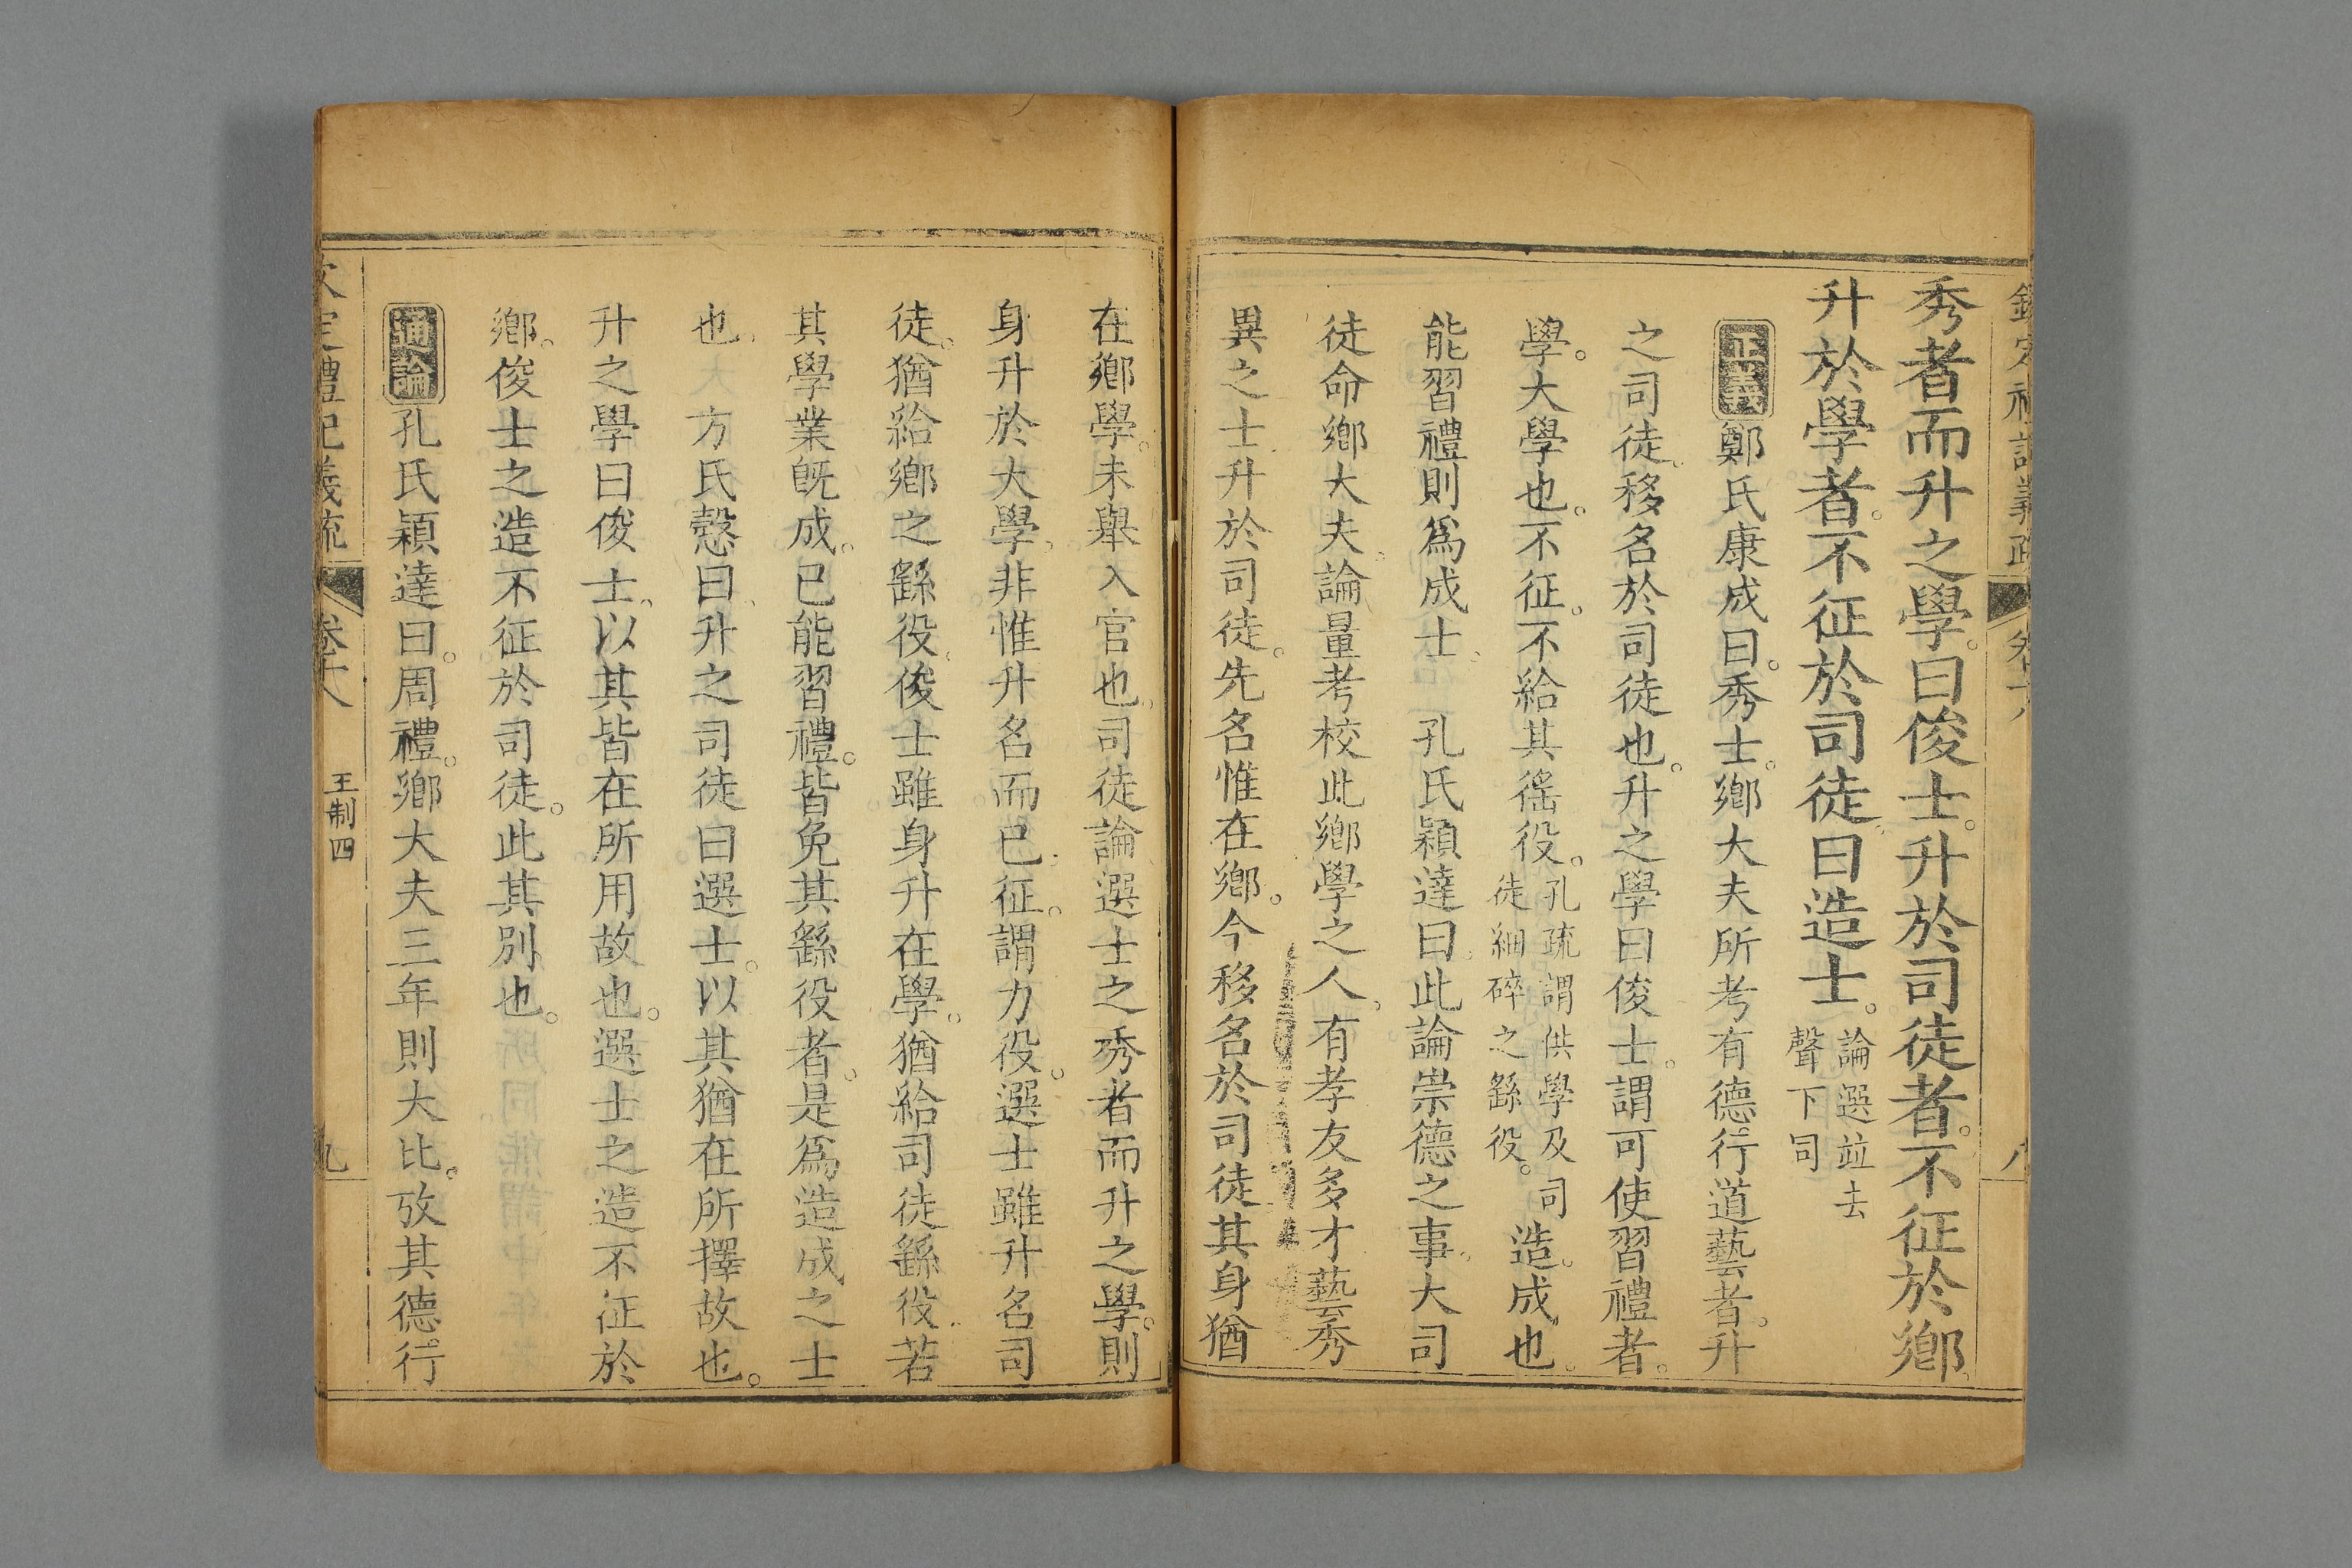 欽定禮記義疏 卷十八 八
秀者而升之學。曰俊士。升於司徒者。不征於鄉。
升於學者。不征於司徒。曰造士。論選竝去
聲下同
正義鄭氏康成曰。秀士。鄉大夫所考有德行道藝者。升
之司徒。移名於司徒也。升之學曰俊士。謂可使習禮者。
學。大學也。不征。不給其徭役。孔疏謂供學及司
徒細碎之繇役。造。成也。
能習禮則爲成士、 孔氏穎達曰、此論崇德之事、大司
徒命鄉大夫、論量考校此鄉學之人、有孝友多才藝秀
異之士升於司徒。先名惟在鄉。今移名於司徒其身猶
在鄉學。未舉入官也。司徒論選士之秀者而升之學。則
身升於大學、非惟升名而已。征。謂力役。選士雖升名司
徒。猶給鄉之繇役、俊士雖身升在學。猶給司徒繇役、若
其學業旣成。已能習禮。皆免其繇役者。是爲造成之士
也、 方氏慤曰、升之司徒曰選士。以其猶在所擇故也。
升之學曰俊士、以其皆在所用故也。選士之造不征於
鄉。俊士之造不征於司徒。此其別也。
通論孔氏穎達曰。周禮。鄉大夫三年則大比。攷其德行
欽定禮記義疏 卷十八 王制四 九